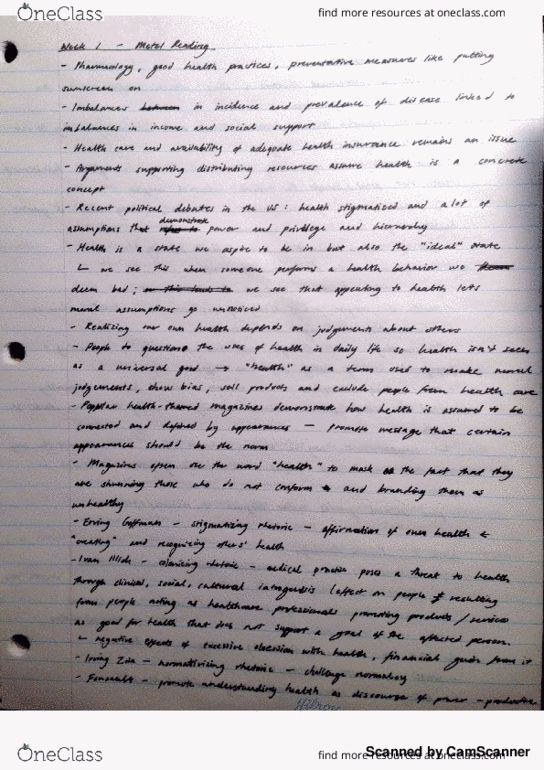 OneClass
find more resources at oneclass.com
Week 1 - Metzl Reading
- Pharmacology, good health practices, preventative measures like putting
sunscreen on
- Imbalances between in incidence and prevalence of disease linked to
imbalances in income and social support
- Health care and availability of adequate health insurance remains an issue
- Arguments supporting distributing resources assume health is a concrete
concept
- Recent political debates in the US: health stigmatized and a lot of
assumptions that demonstrate power and privilege and hierarchy
- Health is a state we aspire to be in but also the "ideal" state
↳ we see this when someone performs a health behavior we
deem bad; we see that appealing to health lets
moral assumptions go unnoticed
- Realizing our own health depends on judgements about others
- People to question the uses of health in daily life so health isn't seen
as a universal good → "health" as a term used to make moral
judgements, show bias, sell products and exclude people from health care
- Popular health-themed magazines demonstrate how health is assumed to be
connected and defined by appearances - promote message that certain
appearances should be the norm
- Magazines often use the word "health" to mask the fact that they
are shunning those who do not conform and branding them as
unhealthy
- Erving Goffman - stigmatizing rhetoric - affirmation of own health ←
"creating" and recognizing others' health
- Ivan Illich - colonizing rhetoric - medical practice poses a threat to health
through clinical, social, cultural iatrogenesis (effect on people resulting
from people acting as healthcare professionals promoting products / services
as good for health that does not support a goal of the affected person.
↳ negative effects of excessive obsession with health, financial gain from it
- Irving Zola - normativizing rhetoric - challenge normalcy
- Foucault - promote understanding health as discourse of power - productive
OneClass
find more resources at oneclass.com
Scanned by CamScanner